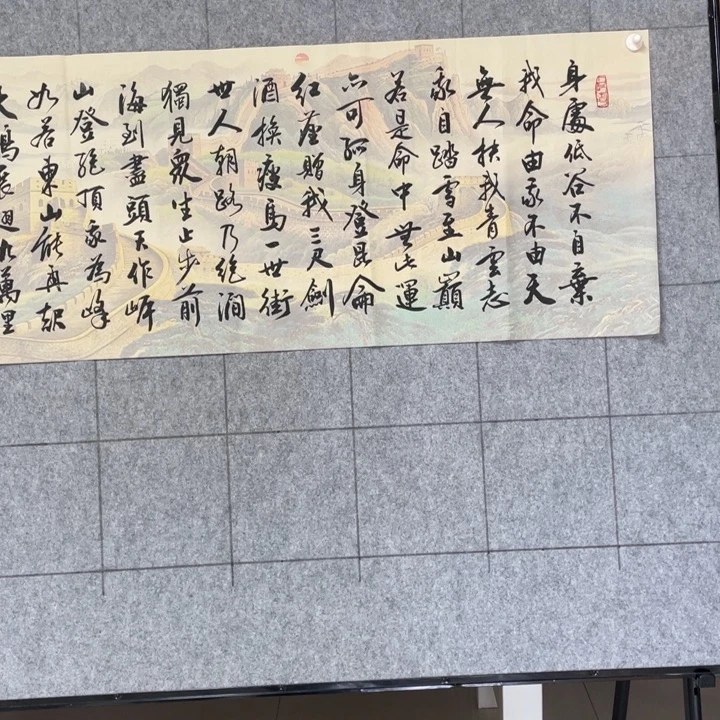 身處低谷不自棄
我命由我不由天
無人扶我青雲志
我自踏雪至山巔
若是命中無此運
亦可孤身登昆侖
紅塵贈我三尺劍
酒換瘦馬一世街
世人朝路乃絕澗
獨見眾生止步前
海到盡頭天作岸
山登絕頂我為峰
如若東山能再起
大鵬展九萬里